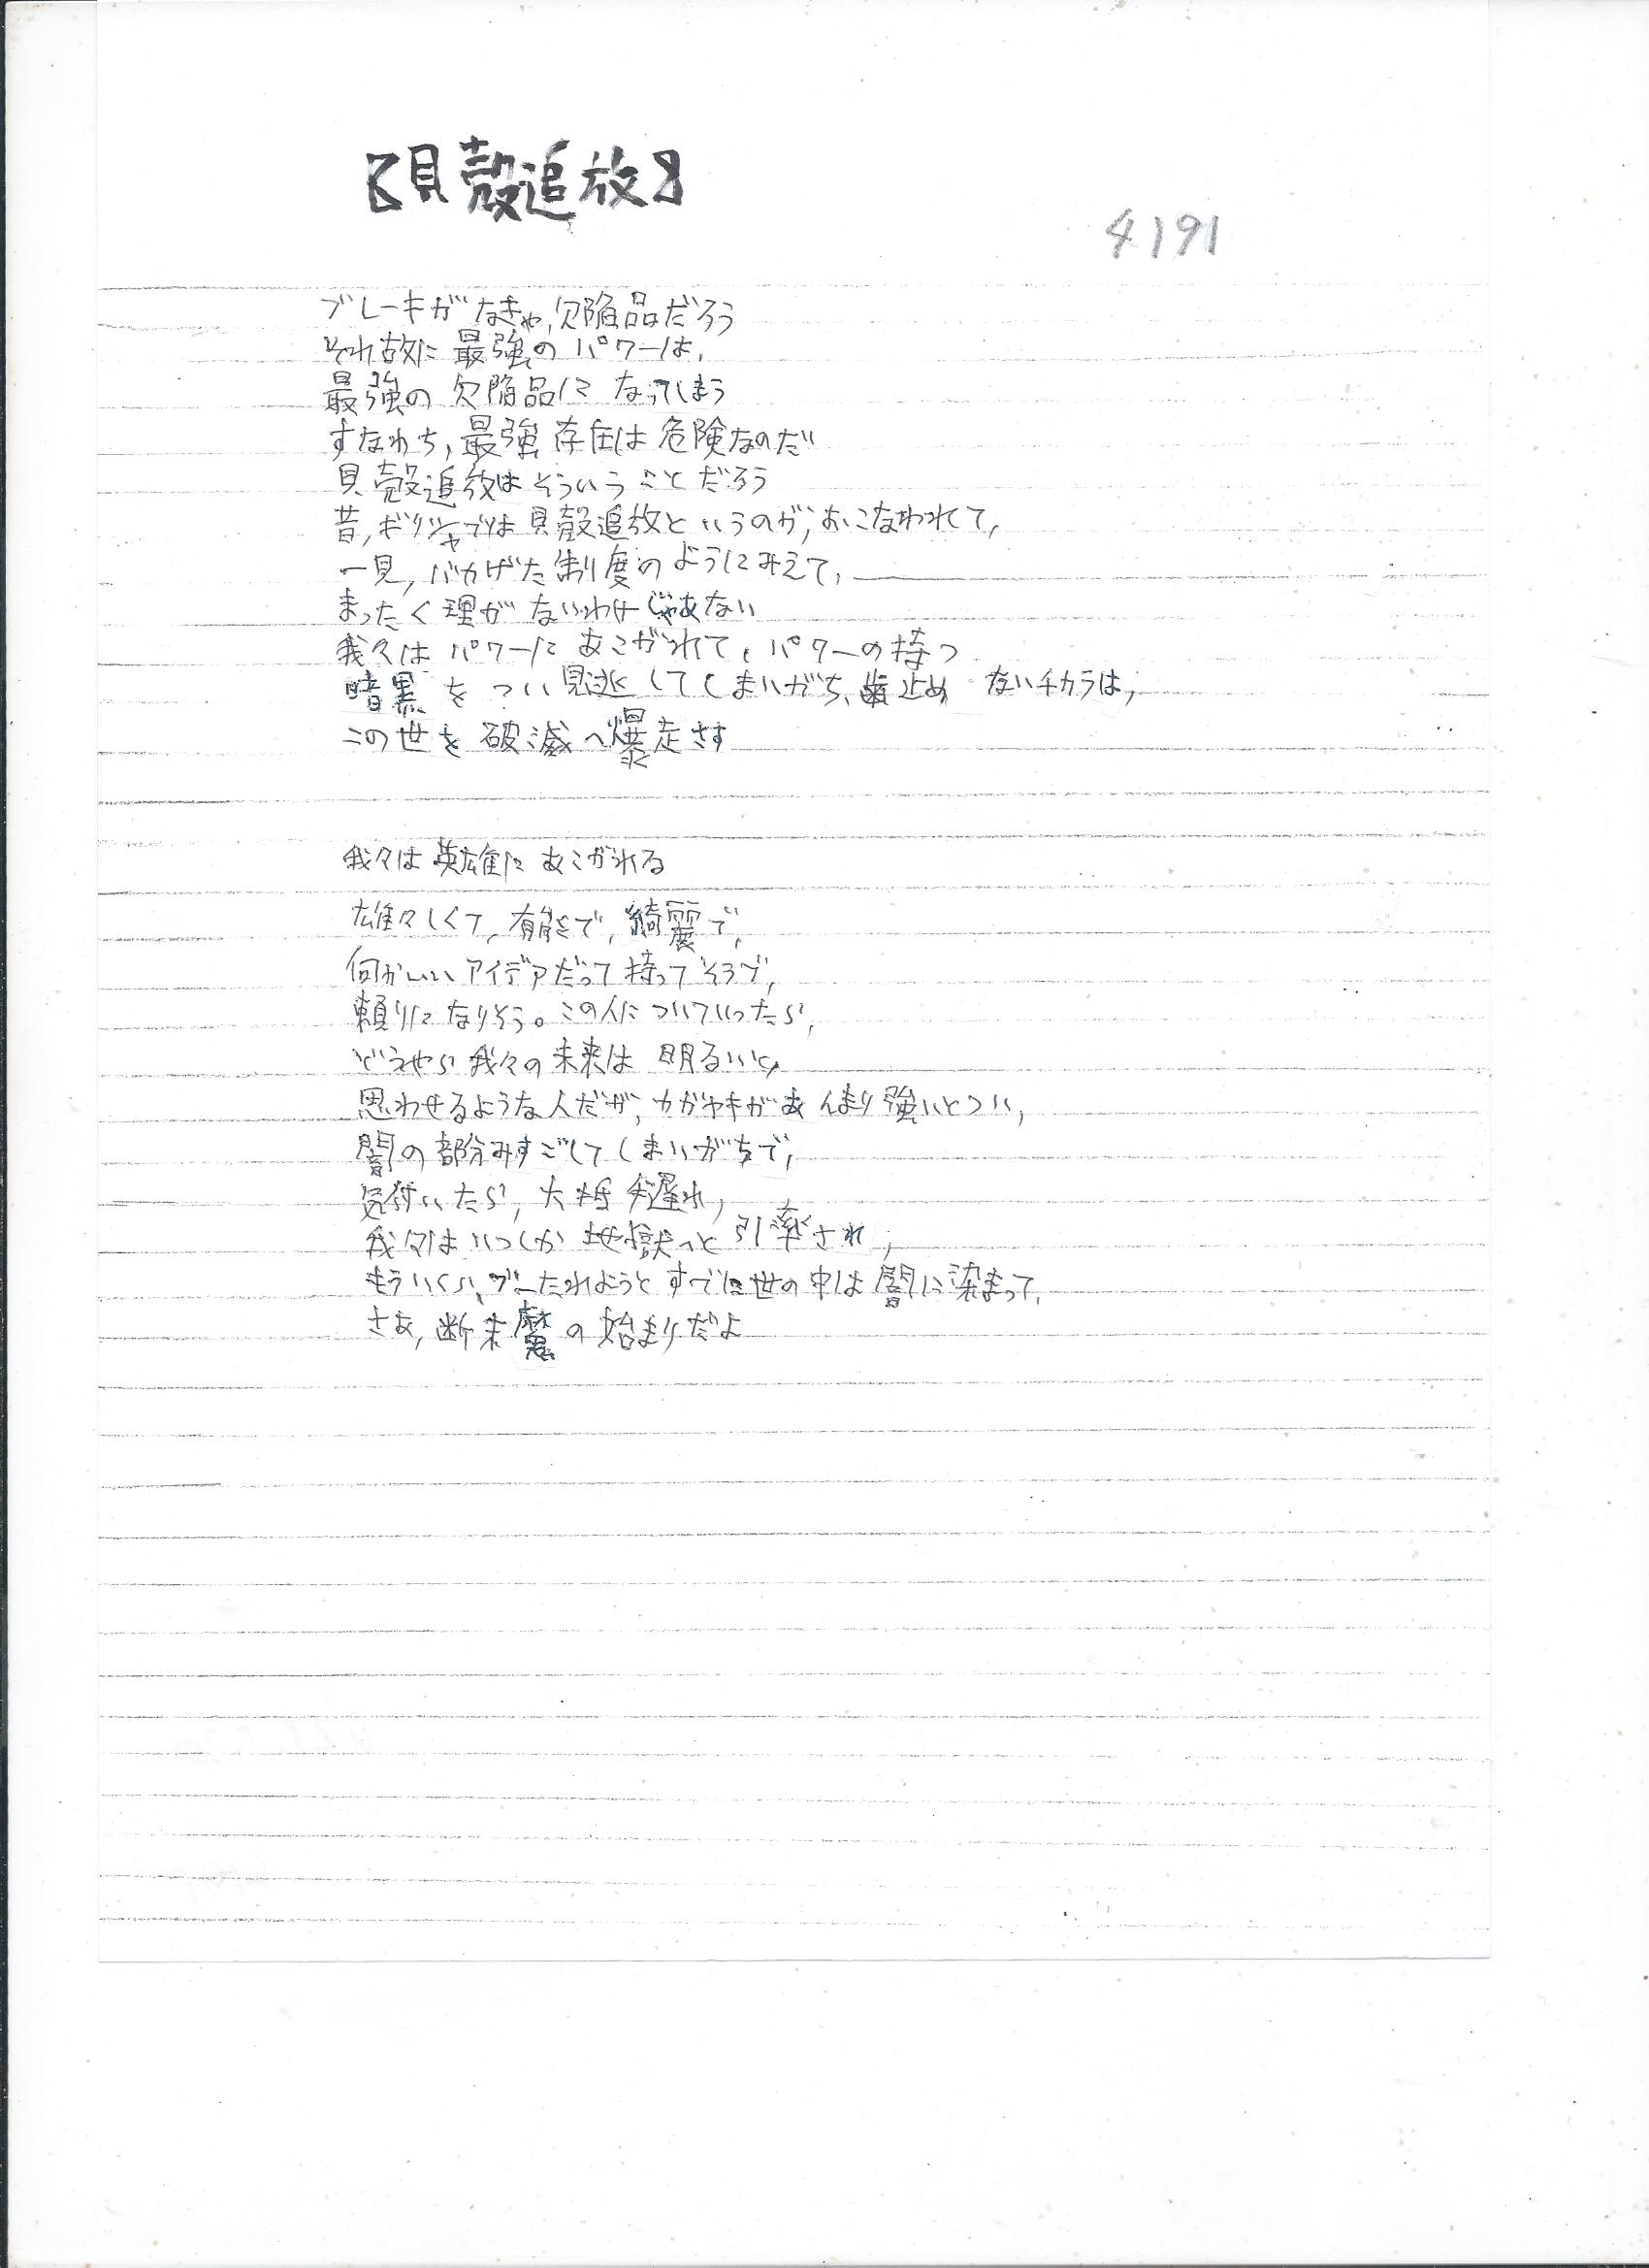 【貝殻追放】
4191
ブレーキがなきゃ、欠陥品だろう
それ故に最強のパワーは、
最強の欠陥品になってしまう
すなわち、最強存在は危険なのだ
貝殻追放はそういうことだろう
昔、ギリシャでは貝殻追放というのが、おこなわれて、
一見、バカげた制度のようにみえて、
まったく理がないわけじゃあない
我々はパワーにあこがれて、パワーの持つ
暗黒をつい見逃してしまいがち、歯止めないチカラは、
この世を破滅へ爆走さす
我々は英雄にあこがれる
雄々しくて、有能で、綺麗で、
何かいいアイデアだって持ってそうで、
頼りになりそう。この人についていったら、
どうやら我々の未来は明るいと、
思わせるような人だが、カガヤキがあんまり強いとつい、
闇の部分みすごしてしまいがちで、
気付いたら、大抵手遅れ、
我々はいつしか地獄へと引率され、
もういくら、ブーたれようとすでに世の中は闇に染まって、
さあ、断末魔の始まりだよ